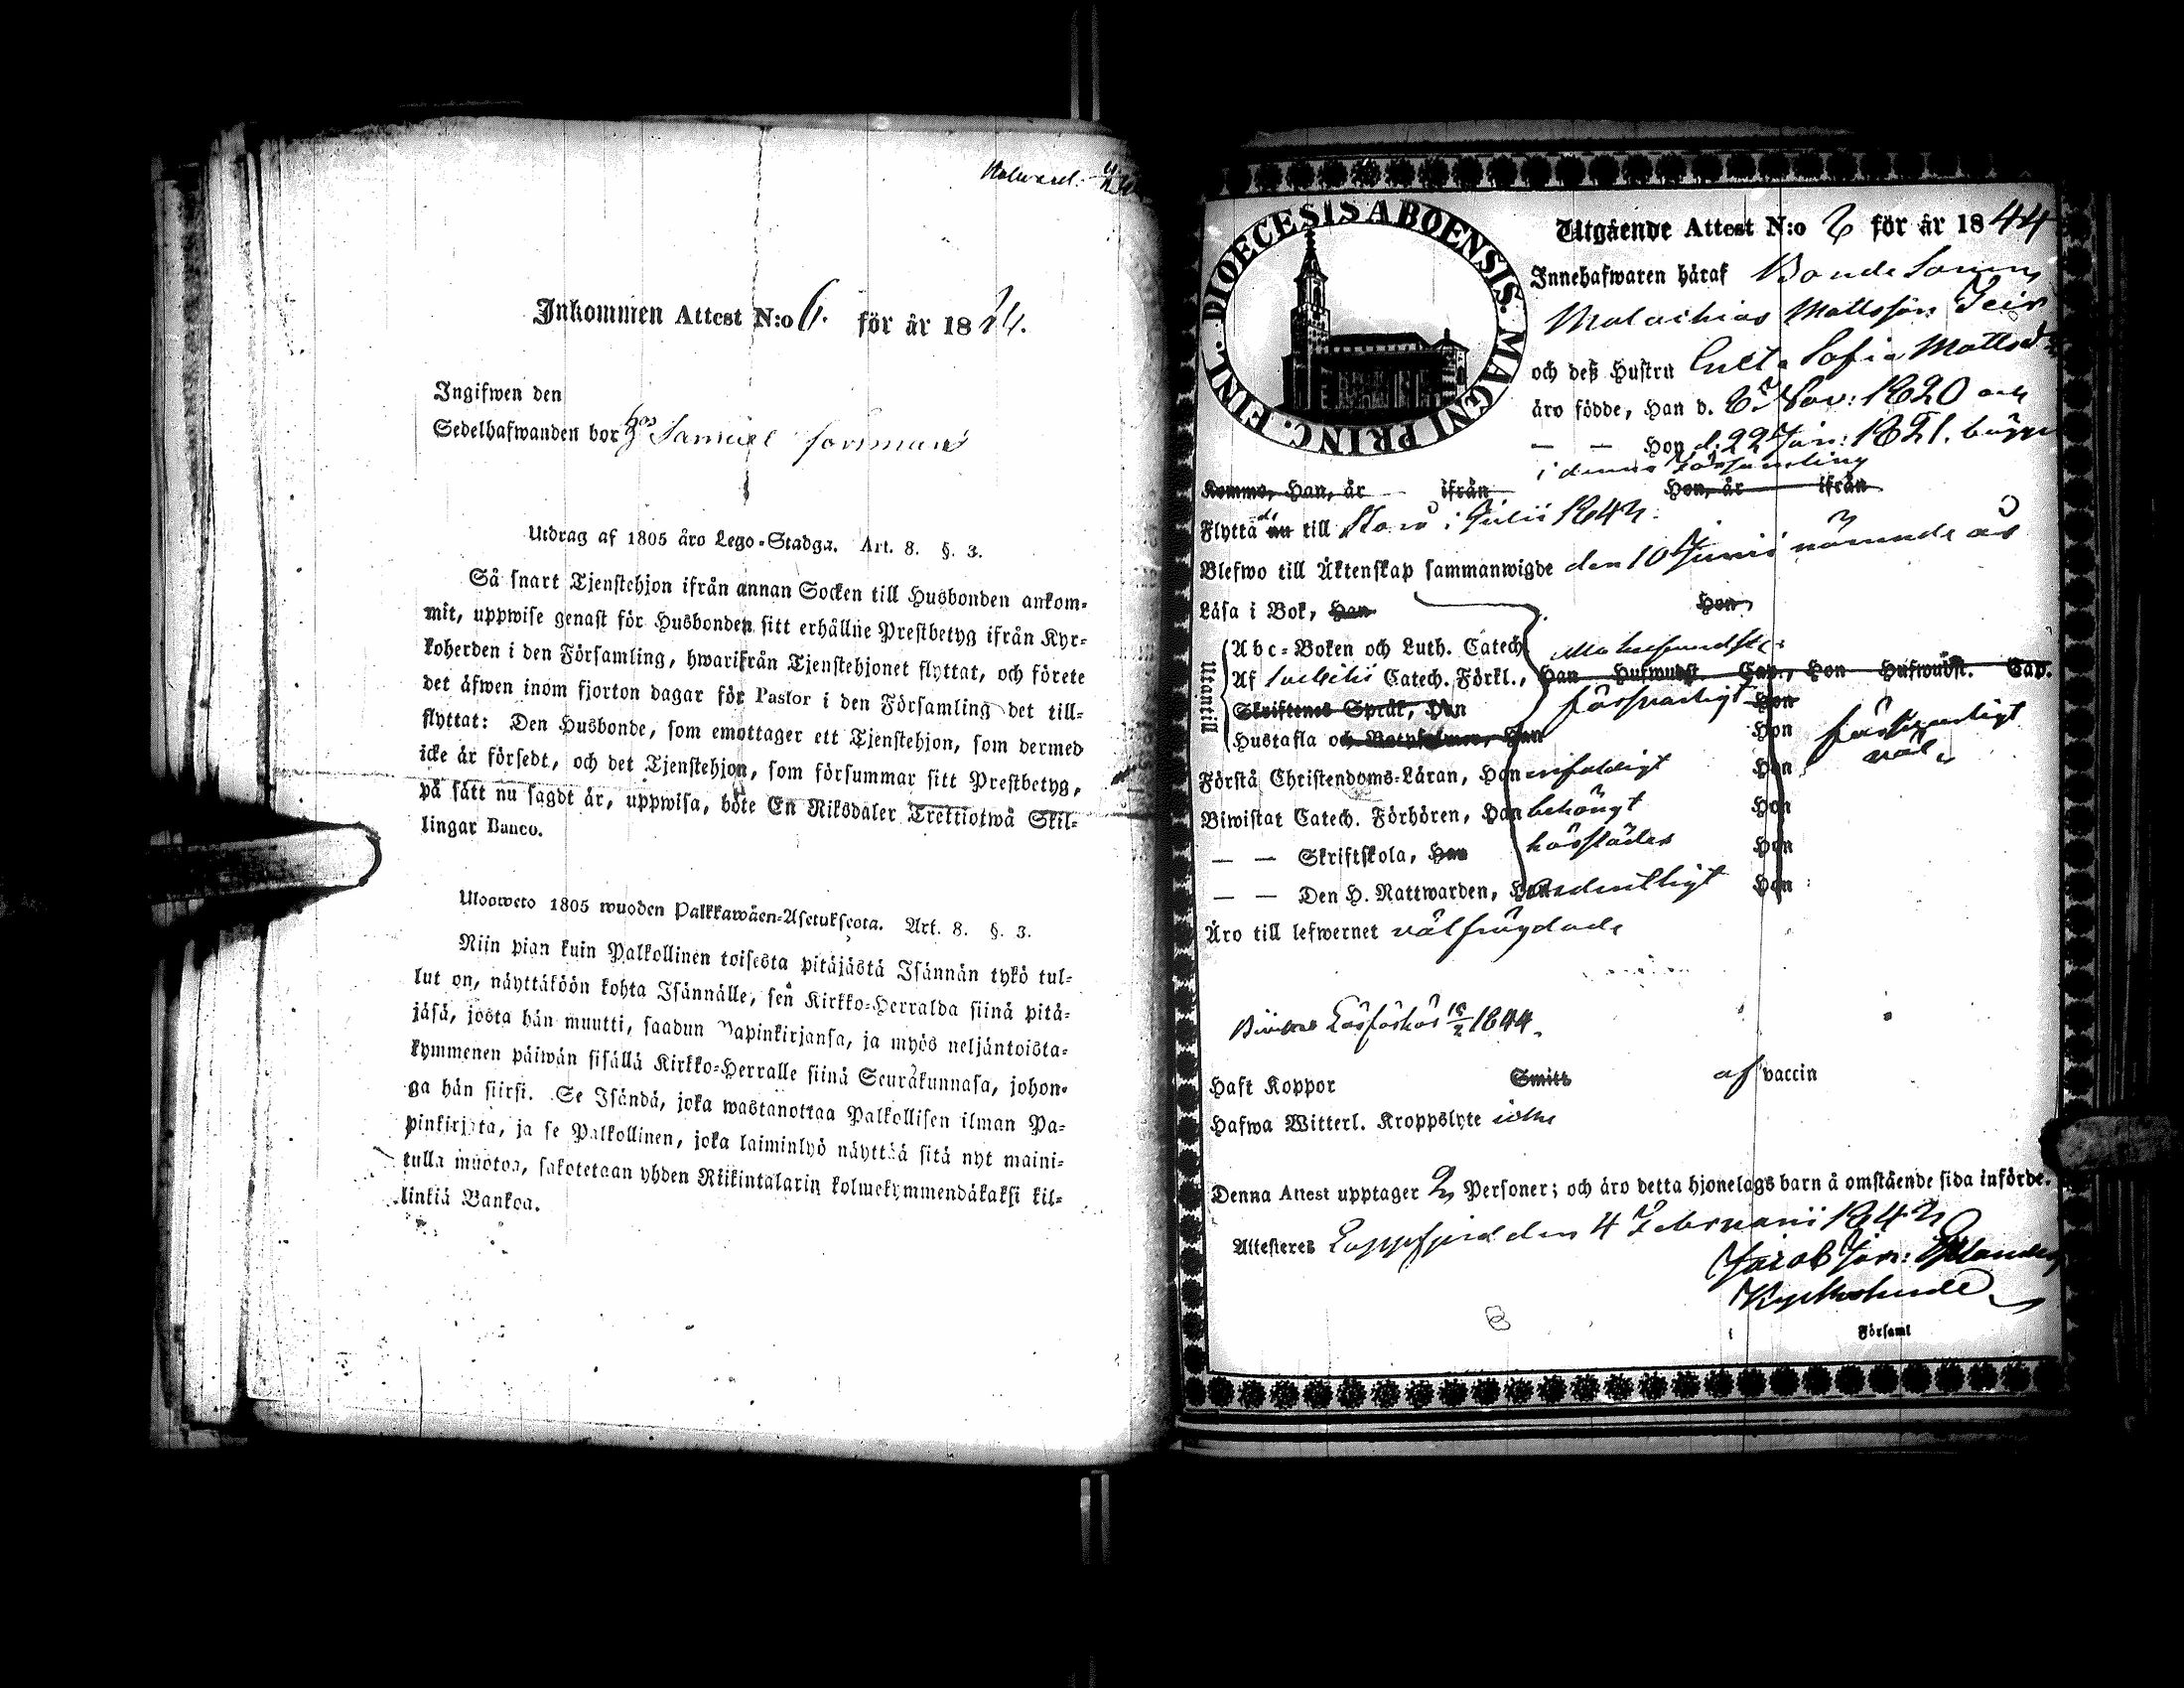 Inkommen Attest N:o 6. för år 1824.
Ingifwen den
Sedelhafwanden bor hos Samuel
Utdrag af 1805 åro Lego-Stadga. Art. 8. §. 3.
Så snart Tjenstehjon ifrån annan Socken till Husbonden ankom-
mit, uppwise genast för Husbonden sitt erhållne Prestbetyg ifrån Kyr-
koherden i den Församling, hwarifrån Tjenstehjonet flyttat, och förete
det äfwen inom fjorton dagar för Pastor i den Församling det till-
flyttat: Den Husbonde, som emottager ett Tjenstehjon, som dermed
icke är försedt, och det Tjenstehjon, som försummar sitt Prestbetyg,
på sätt nu sagdt är, uppwisa, böte En Riksdaler Trettiotwå Skil-
lingar Banco.
Ulosweto 1805 wuoden Palkkawäen-Asetuksesta. Art. 8. §. 3.
Niin pian kuin Palkollinen toisesta pitäjästä Isännän tykö tul-
lut on, näyttäköön kohta Isännälle, sen Kirkko-Herralda siinä pitä-
jäsä, josta hän muutti, saadun Papinkirjansa, ja myös neljäntoista-
kymmenen päiwän sisällä Kirkko-Herralle siinä Seurakunnasa, johon-
ga hän siirsi. Se Isändä, joka wastanottaa Palkollisen ilman Pa-
pinkirjata, ja se Palkollinen, joka laiminlyö näyttää sitä nyt maini-
tulla muotoa, sakotetaan yhden Riikintalarin kolmekymmendäkaksi kil-
linkiä Bankoa.
DIOECESIS ABOENSIS. MAGNI PRINC. FINL.
Utgående Attest N:o 2 för år 1844
Innehafwaren häraf Bonde Sonen
Malachias Mattsson
och deß Hustru Greta Sofia Mattsdr
äro födde, Han d. 6 Nov: 1820 och
— — Hon d. 22 Jan: 1821. bägge
i denna Församling
Komma, Han, år ifrån Hon, år ifrån
Flyttade nu till i Julii 1842.
Blefwo till Äktenskap sammanwigde den 10 Junii nämnde år
Läsa i Bok, Han Hon
Utantill
Abc-Boken och Luth. Catech.
Af Svebilii Catech. Förkl., Han Hufwudst. Cap., Hon Hufwudst. Cap.
Skriftenes Språk, Han försvarligt Hon
Hustafla och Botpsalmer, Han Hon försvarligt
Förstå Christendoms-Läran, Han enfaldigt Hon väl
Biwistat Catech. Förhören, Han behörigt Hon
— — Skriftskola, Han härstädes Hon
— — Den H. Nattwarden, Han ordentligt Hon
Äro till lefwernet välfrägdade
Bivistat Läsförhör 16/2 1844.
Haft Koppor Smitt af vaccin
Hafwa Witterl. Kroppslyte icke
Denna Attest upptager 2 Personer; och äro detta hjonelags barn å omstående sida införde.
Attesteres Lappfjerd den 4 Februarii 1842
Jacob Jon:
Kyrkoherde
i Församl